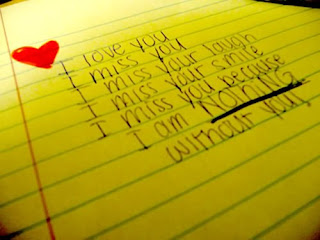 I love you
I miss you
I miss your laugh
I miss your smile
I miss you because
I am NOTHING
without you.